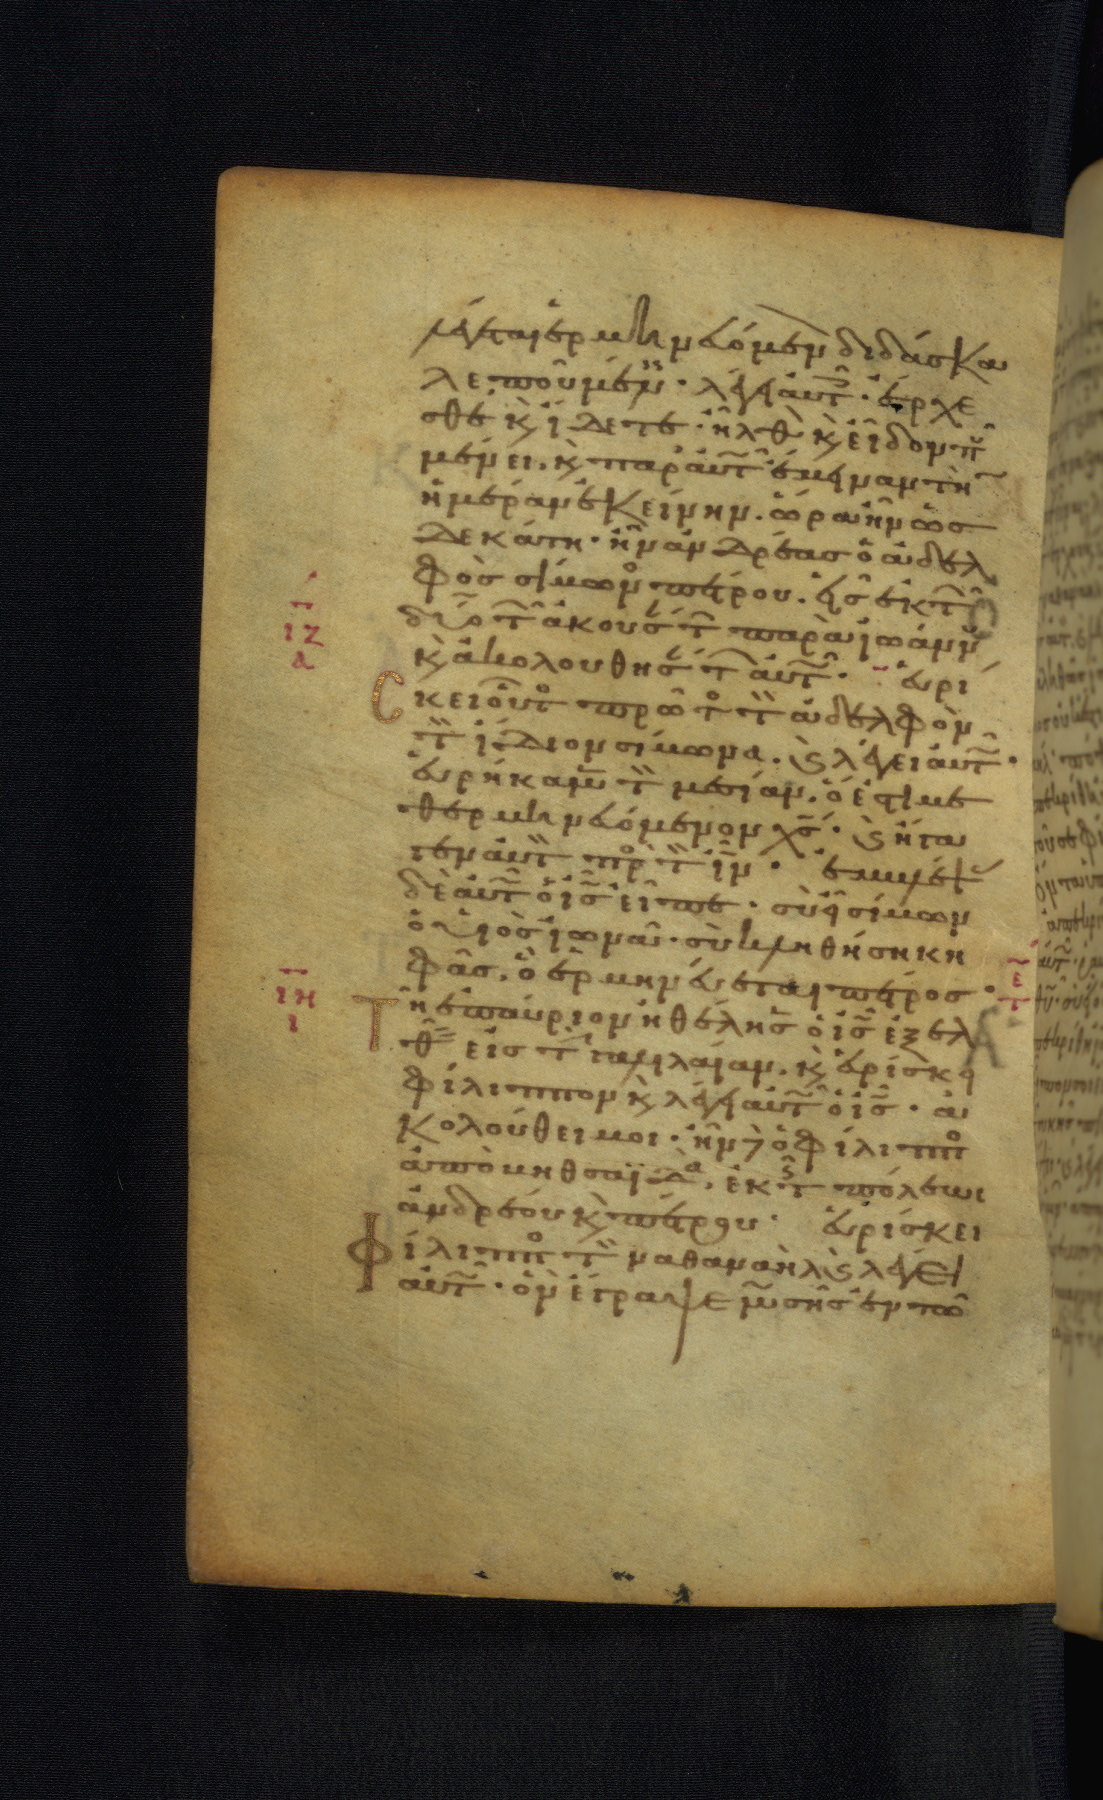 λέγεται ἑρμηνευόμενον διδάσκα
λε ποῦ μένεις· λέγει αὐτοῖς· ἔρχε
σθε κ̀ ἴδετε· ἦλθον κ̀ εἶδον ποῦ
μένει. κ̀ παρ' αὐτῶ ἔμειναν τὴν
ἡμέραν ἐκείνην. ὥρα ἦν ὡς
δεκάτη· ἦν ἀνδρέας ὁ ἀδελ
φὸς σίμωνος πέτρου. εἷς ἐκ τῶν
δύο τῶν ἀκουσάντων παρὰ ἰωάννου
κ̀ ἀκολουθησάντων αὐτῶ· εὑρί
σκει οὗτος πρῶτος τὸν ἀδελφὸν
τὸν ἴδιον σίμωνα. κ̀ λέγει αὐτῶ·
εὑρήκαμεν τὸν μεσίαν. ὅ ἐστι με
θερμηνευόμενον χς̄· κ̀ ἤγα
γεν αὐτὸν πρὸς τὸν ιν̄· ἐμβλέψας
δὲ αὐτῶ ὁ ις̄ εἶπε· σὺ εἶ σίμων
ὁ υἱὸς ἰωνᾶ· σὺ κληθήση κη
φᾶς. ὃ ἑρμηνεύεται πέτρος·
Τῆ ἐπαύριον ἠθέλησεν ὁ ις̄ ἐξελ
θεῖν εἰς τὴν γαλιλαίαν. κ̀ εὑρίσκει
φίλιππον κ̀ λέγει αὐτῶ ὁ ις̄· ἀ
κολούθει μοι· ἦν δὲ ὁ φίλιππος
ἀπὸ βηθσαϊδά. ἐκ τῆς πόλεως
ἀνδρέου κ̀ πέτρου· εὑρίσκει
Φίλιππος τὸν ναθαναὴλ κ̀ λέγει
αὐτῶ· ὃν ἔγραψε μωσῆς ἐν τῶ
ιζ
α
ιη
ι